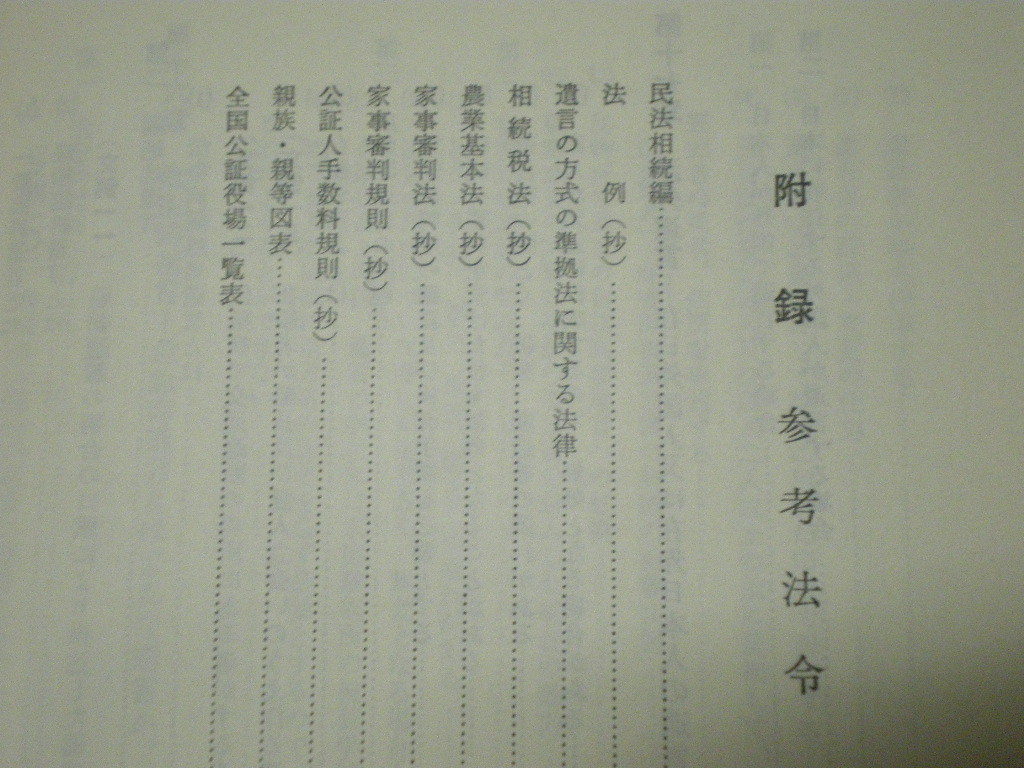 附録 参考法令
民法相続編
法例(抄)
遺言の方式の準拠法に関する法律
相続税法(抄)
農業基本法(抄)
家事審判法(抄)
家事審判規則(抄)
公証人手数料規則(抄)
親族・親等図表
全国公証役場一覧表